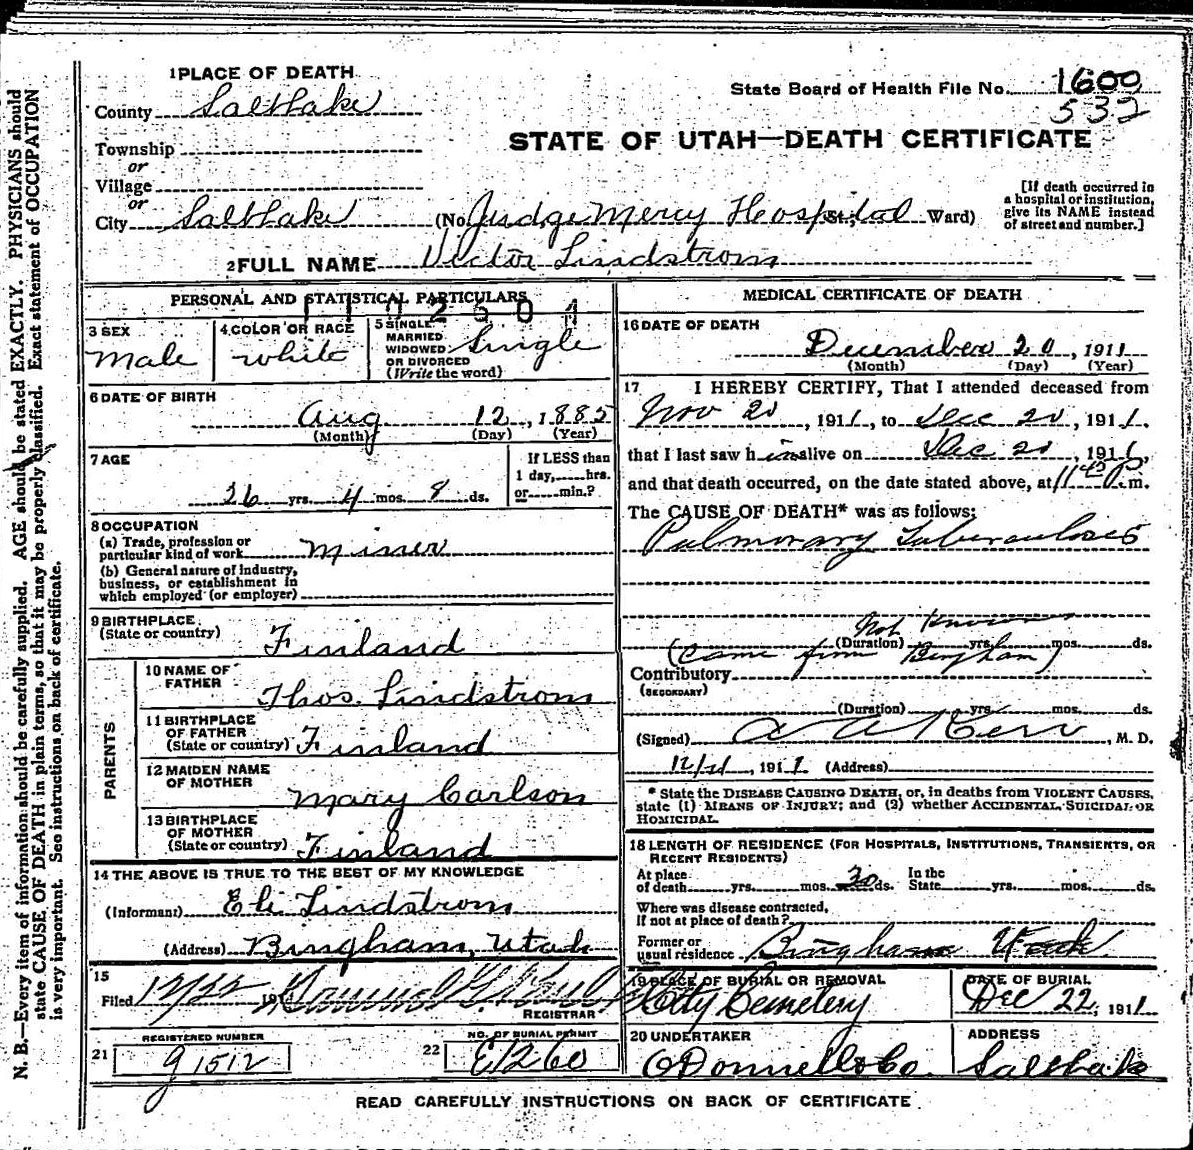 N. B.—Every item of information should be carefully supplied. AGE should be stated EXACTLY. PHYSICIANS should
state CAUSE OF DEATH in plain terms, so that it may be properly classified. Exact statement of OCCUPATION
is very important. See instructions on back of certificate.
1 PLACE OF DEATH
County Salt Lake
Township
or
Village
or
City Salt Lake
State Board of Health File No. 1600
532
STATE OF UTAH—DEATH CERTIFICATE
(No. Judge Mercy Hospital St.; Ward)
[If death occurred in
a hospital or institution,
give its NAME instead
of street and number.]
2 FULL NAME Victor Lindstrom
PERSONAL AND STATISTICAL PARTICULARS
3 SEX
Male
4 COLOR OR RACE
White
5 SINGLE
MARRIED
WIDOWED
OR DIVORCED
(Write the word)
Single
6 DATE OF BIRTH
Aug 12, 1885
(Month) (Day) (Year)
7 AGE
26 yrs. 4 mos. 8 ds.
If LESS than
1 day, hrs.
or min.?
8 OCCUPATION
(a) Trade, profession or
particular kind of work Miner
(b) General nature of industry,
business, or establishment in
which employed (or employer)
9 BIRTHPLACE
(State or country) Finland
PARENTS
10 NAME OF
FATHER Thos. Lindstrom
11 BIRTHPLACE
OF FATHER
(State or country) Finland
12 MAIDEN NAME
OF MOTHER Mary Carlson
13 BIRTHPLACE
OF MOTHER
(State or country) Finland
14 THE ABOVE IS TRUE TO THE BEST OF MY KNOWLEDGE
(Informant) Eli Lindstrom
(Address) Bingham, Utah
15
Filed 12/22 191
REGISTRAR
REGISTERED NUMBER
21 g1512
NO. OF BURIAL PERMIT
22 E1260
MEDICAL CERTIFICATE OF DEATH
16 DATE OF DEATH
December 20, 1911
(Month) (Day) (Year)
17 I HEREBY CERTIFY, That I attended deceased from
Nov 20, 1911, to Dec 20, 1911.
that I last saw him alive on Dec 20, 1911,
and that death occurred, on the date stated above, at 11 42 P. m.
The CAUSE OF DEATH* was as follows:
Pulmonary Tuberculosis
Not Known
(Duration) yrs. mos. ds.
(Came from Bingham)
Contributory
(SECONDARY)
(Duration) yrs. mos. ds.
(Signed) A A Kerr, M. D.
12/21, 1911 (Address)
* State the DISEASE CAUSING DEATH, or, in deaths from VIOLENT CAUSES,
state (1) MEANS OF INJURY; and (2) whether ACCIDENTAL, SUICIDAL OR
HOMICIDAL.
18 LENGTH OF RESIDENCE (FOR HOSPITALS, INSTITUTIONS, TRANSIENTS, OR
RECENT RESIDENTS)
At place
of death yrs. mos. 30 ds.
In the
State yrs. mos. ds.
Where was disease contracted,
If not at place of death?
Former or
usual residence Bingham Utah
19 PLACE OF BURIAL OR REMOVAL
City Cemetery
DATE OF BURIAL
Dec 22, 1911
20 UNDERTAKER
O'Donnell & Co.
ADDRESS
Salt Lake
READ CAREFULLY INSTRUCTIONS ON BACK OF CERTIFICATE